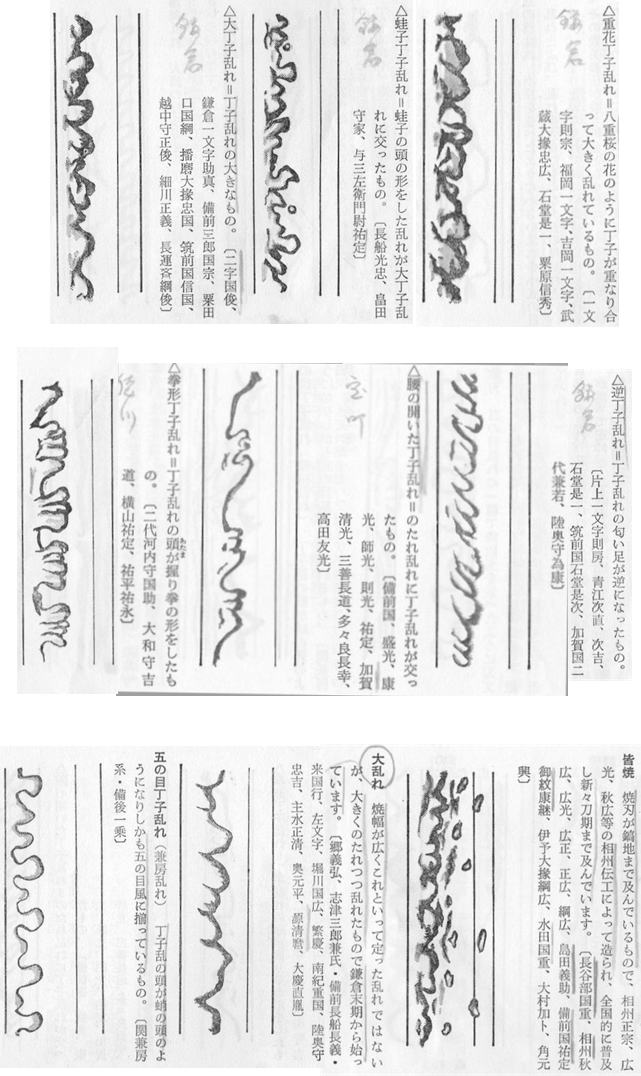 △重花丁子乱れ＝八重桜の花のように丁子が重なり合
って大きく乱れているもの。〔一文
字則宗、福岡一文字、吉岡一文字、武
蔵大掾忠広、石堂是一、栗原信秀〕
鎌倉
△蛙子丁子乱れ＝蛙子の頭の形をした乱れが大丁子乱
れに交ったもの。〔長船光忠、畠田
守家、与三左衛門尉祐定〕
鎌倉
△大丁子乱れ＝丁子乱れの大きなもの。〔二字国俊、
鎌倉一文字助真、備前三郎国宗、粟田
口国綱、播磨大掾忠国、筑前国信国、
越中守正俊、細川正義、長運斉綱俊〕
鎌倉
△逆丁子乱れ＝丁子乱れの匂い足が逆になったもの。
〔片上一文字則房、青江次直、次吉、
石堂是一、筑前国石堂是次、加賀国二
代兼若、陸奥守為康〕
鎌倉
△腰の開いた丁子乱れ＝のたれ乱れに丁子乱れが交っ
たもの。〔備前国、盛光、康
光、師光、則光、祐定、加賀
清光、三善長道、多々良長幸、
高田友光〕
室町
△拳形丁子乱れ＝丁子乱れの頭が握り拳の形をしたも
の。〔二代河内守国助、大和守吉
道、横山祐定、祐平祐永〕
徳川
皆焼　焼刃が鎬地まで及んでいるもので、相州正宗、広
光、秋広等の相州伝工によって造られ、全国的に普及
し新々刀期まで及んでいます。〔長谷部国重、相州秋
広、広光、広正、正広、綱広、島田義助、備前国祐定
御紋康継、伊予大掾綱広、水田国重、大村加卜、角元
興〕
大乱れ　焼幅が広くこれといって定った乱れではない
が、大きくのたれつつ乱れたもので鎌倉末期から始っ
ています。〔郷義弘、志津三郎兼氏・備前長船長義・
来国行、左文字、堀川国広、繁慶、南紀重国、陸奥守
忠吉、主水正清、奥元平、源清麿、大慶直胤〕
五の目丁子乱れ（兼房乱れ）　丁子乱の頭が蛸の頭のよ
うになりしかも五の目風に揃っているもの。〔関兼房
系・備後一乗〕